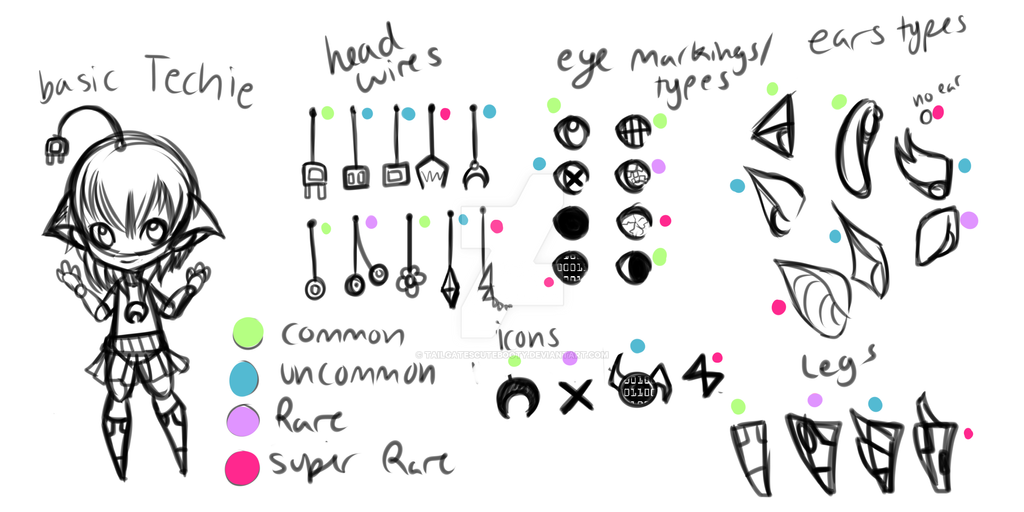 basic Techie
head
wires
eye markings/
types
ears types
no ear
common
uncommon
Rare
super Rare
icons
Legs
© TAILGATESCUTEBOOTY.DEVIANTART.COM